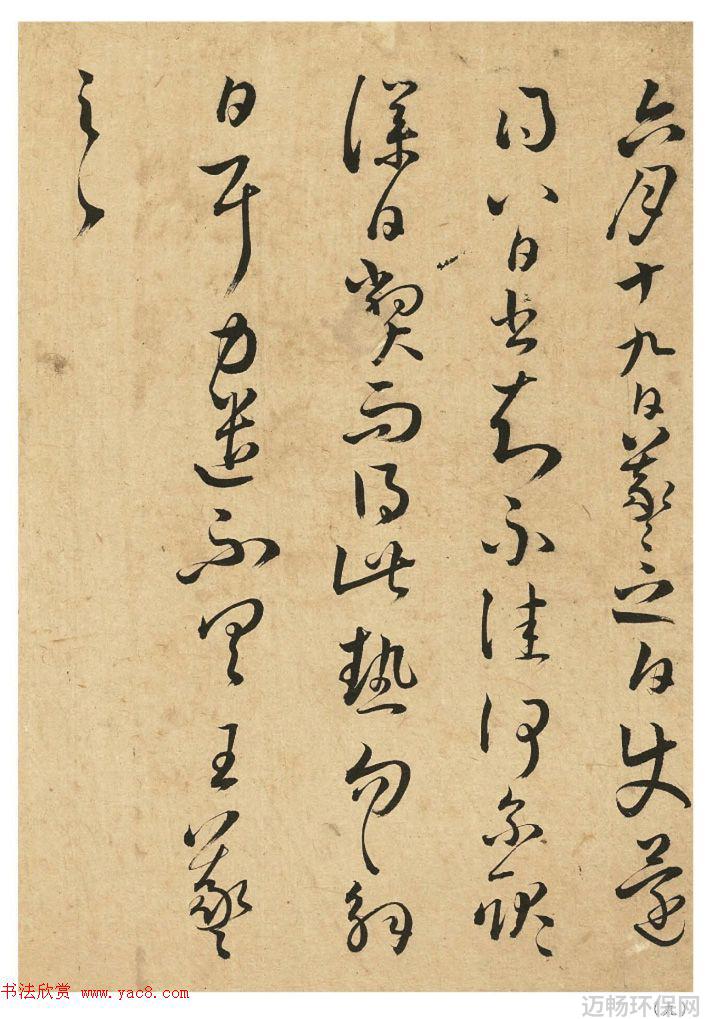 六月十九日羲之白使還
得八日書知不佳何爾耿〻
僕日弊而得此熱勿〻解
日耳力遣不具王羲
之
书法欣赏 www.yac8.com
迈畅环保网